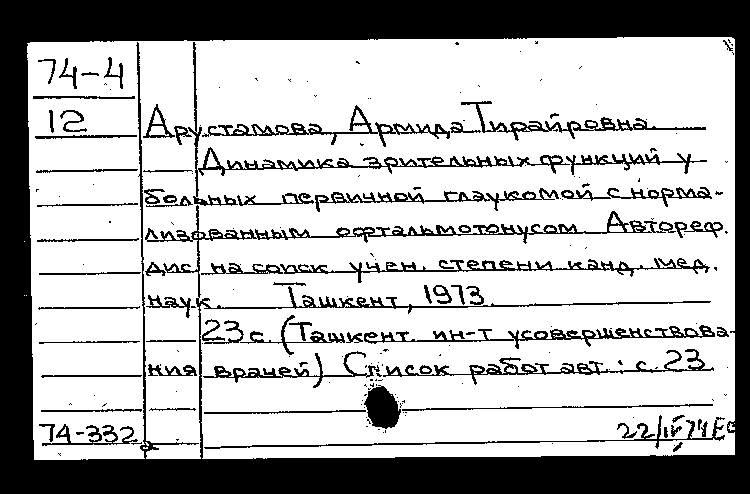 74-4
12 Арустамова, Армида Тирайровна.
Динамика зрительных функций у
больных первичной глаукомой с норма-
лизованным офтальмотонусом. Автореф.
дис. на соиск. учен. степени канд. мед.
наук. Ташкент, 1973.
23 с. (Ташкент. ин-т усовершенствова-
ния врачей) Список работ авт.: с. 23
74-332 22/IV 74